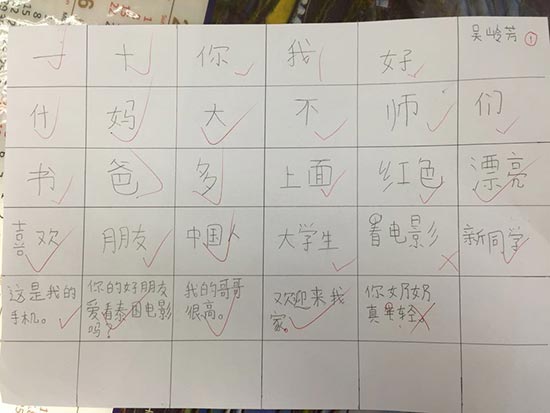 吴岭芳 ①
一 十 你 我 好
什 妈 大 不 师 们
书 爸 多 上面 红色 漂亮
喜欢 朋友 中国人 大学生 看电影 新同学
这是我的
手机。
你的好朋友
爱看泰国电影
吗?
我的哥哥
很高。
欢迎来我
家。
你奶奶
真年轻。